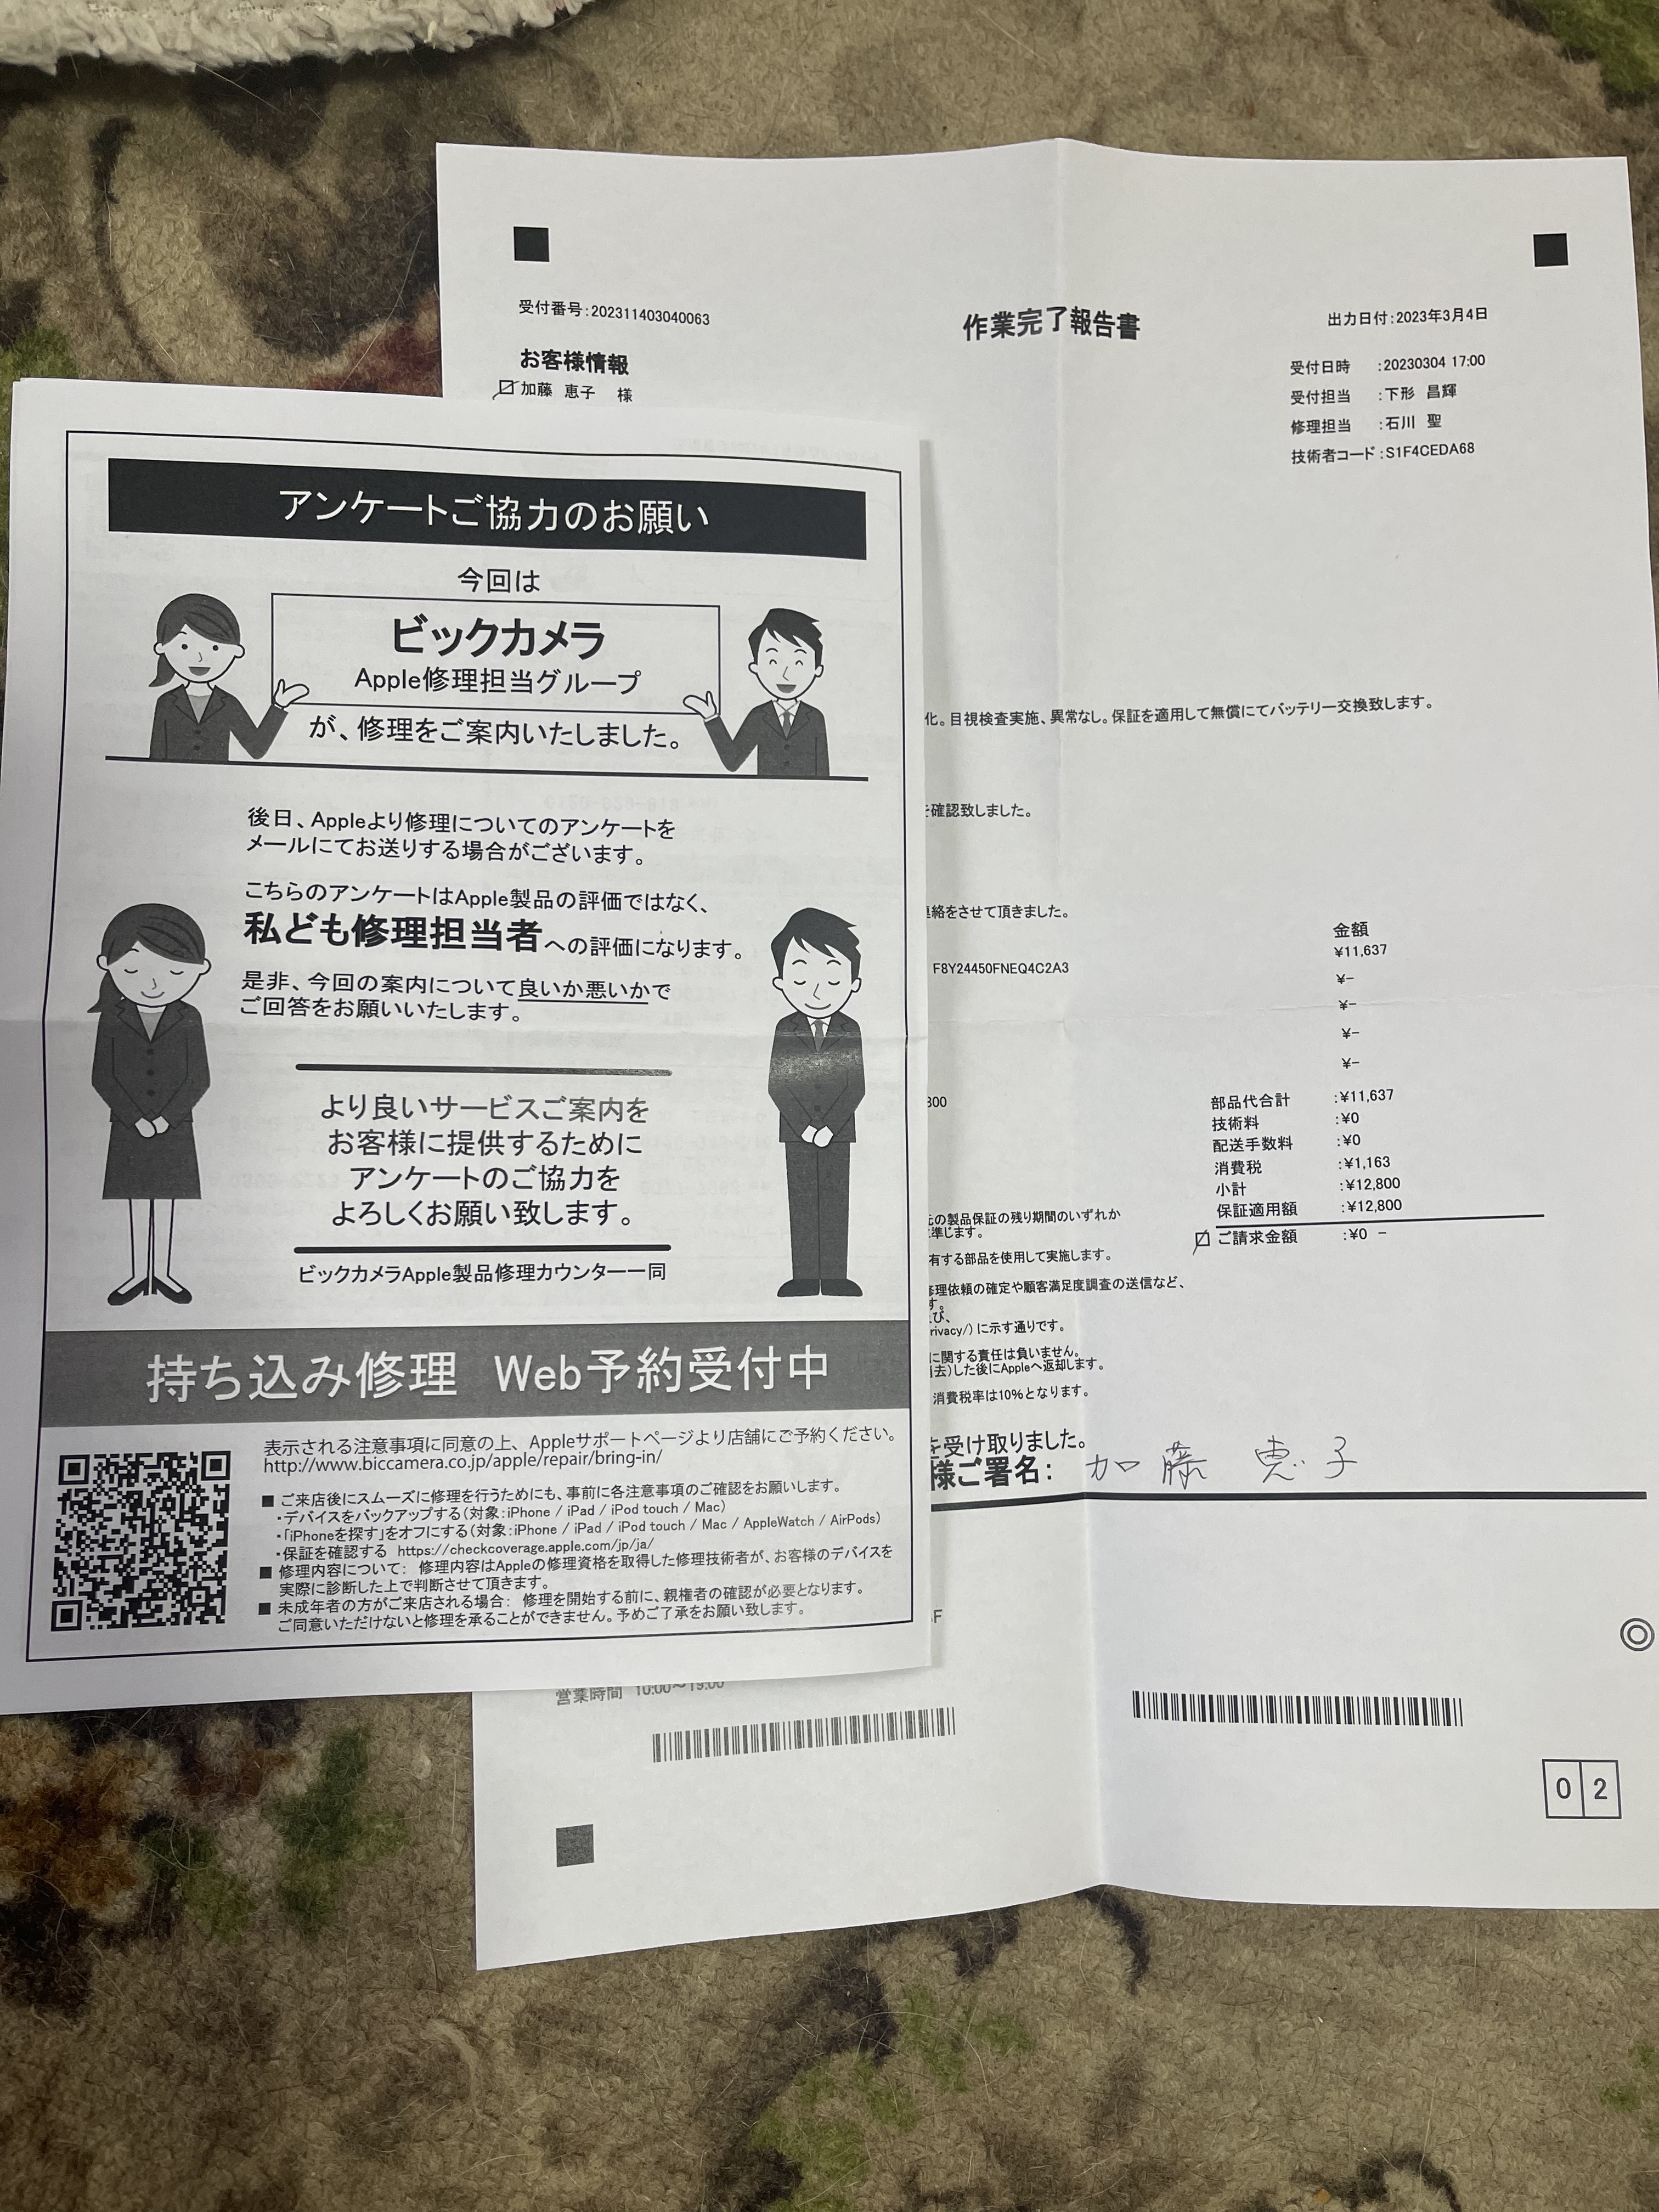 受付番号:202311403040063
作業完了報告書
出力日付:2023年3月4日
お客様情報
加藤 恵子 様
受付日時 :20230304 17:00
受付担当 :下形 昌輝
修理担当 :石川 聖
技術者コード:S1F4CEDA68
化。目視検査実施、異常なし。保証を適用して無償にてバッテリー交換致します。
を確認致しました。
連絡をさせて頂きました。
金額
¥11,637
F8Y24450FNEQ4C2A3
¥-
¥-
¥-
¥-
800
部品代合計 :¥11,637
技術料 :¥0
配送手数料 :¥0
消費税 :¥1,163
小計 :¥12,800
保証適用額 :¥12,800
ご請求金額 :¥0 -
元の製品保証の残り期間のいずれか
準じます。
有する部品を使用して実施します。
修理依頼の確定や顧客満足度調査の送信など、
す。
及び、
rivacy/)に示す通りです。
に関する責任は負いません。
消去)した後にAppleへ返却します。
消費税率は10%となります。
を受け取りました。
様ご署名: 加藤 恵子
F
営業時間 10:00~19:00
0 2
アンケートご協力のお願い
今回は
ビックカメラ
Apple修理担当グループ
が、修理をご案内いたしました。
後日、Appleより修理についてのアンケートを
メールにてお送りする場合がございます。
こちらのアンケートはApple製品の評価ではなく、
私ども修理担当者への評価になります。
是非、今回の案内について良いか悪いかで
ご回答をお願いいたします。
より良いサービスご案内を
お客様に提供するために
アンケートのご協力を
よろしくお願い致します。
ビックカメラApple製品修理カウンター一同
持ち込み修理 Web予約受付中
表示される注意事項に同意の上、Appleサポートページより店舗にご予約ください。
http://www.biccamera.co.jp/apple/repair/bring-in/
■ ご来店後にスムーズに修理を行うためにも、事前に各注意事項のご確認をお願いします。
・デバイスをバックアップする(対象:iPhone / iPad / iPod touch / Mac)
・「iPhoneを探す」をオフにする(対象:iPhone / iPad / iPod touch / Mac / AppleWatch / AirPods)
・保証を確認する https://checkcoverage.apple.com/jp/ja/
■ 修理内容について: 修理内容はAppleの修理資格を取得した修理技術者が、お客様のデバイスを
実際に診断した上で判断させて頂きます。
■ 未成年者の方がご来店される場合: 修理を開始する前に、親権者の確認が必要となります。
ご同意いただけないと修理を承ることができません。予めご了承をお願い致します。